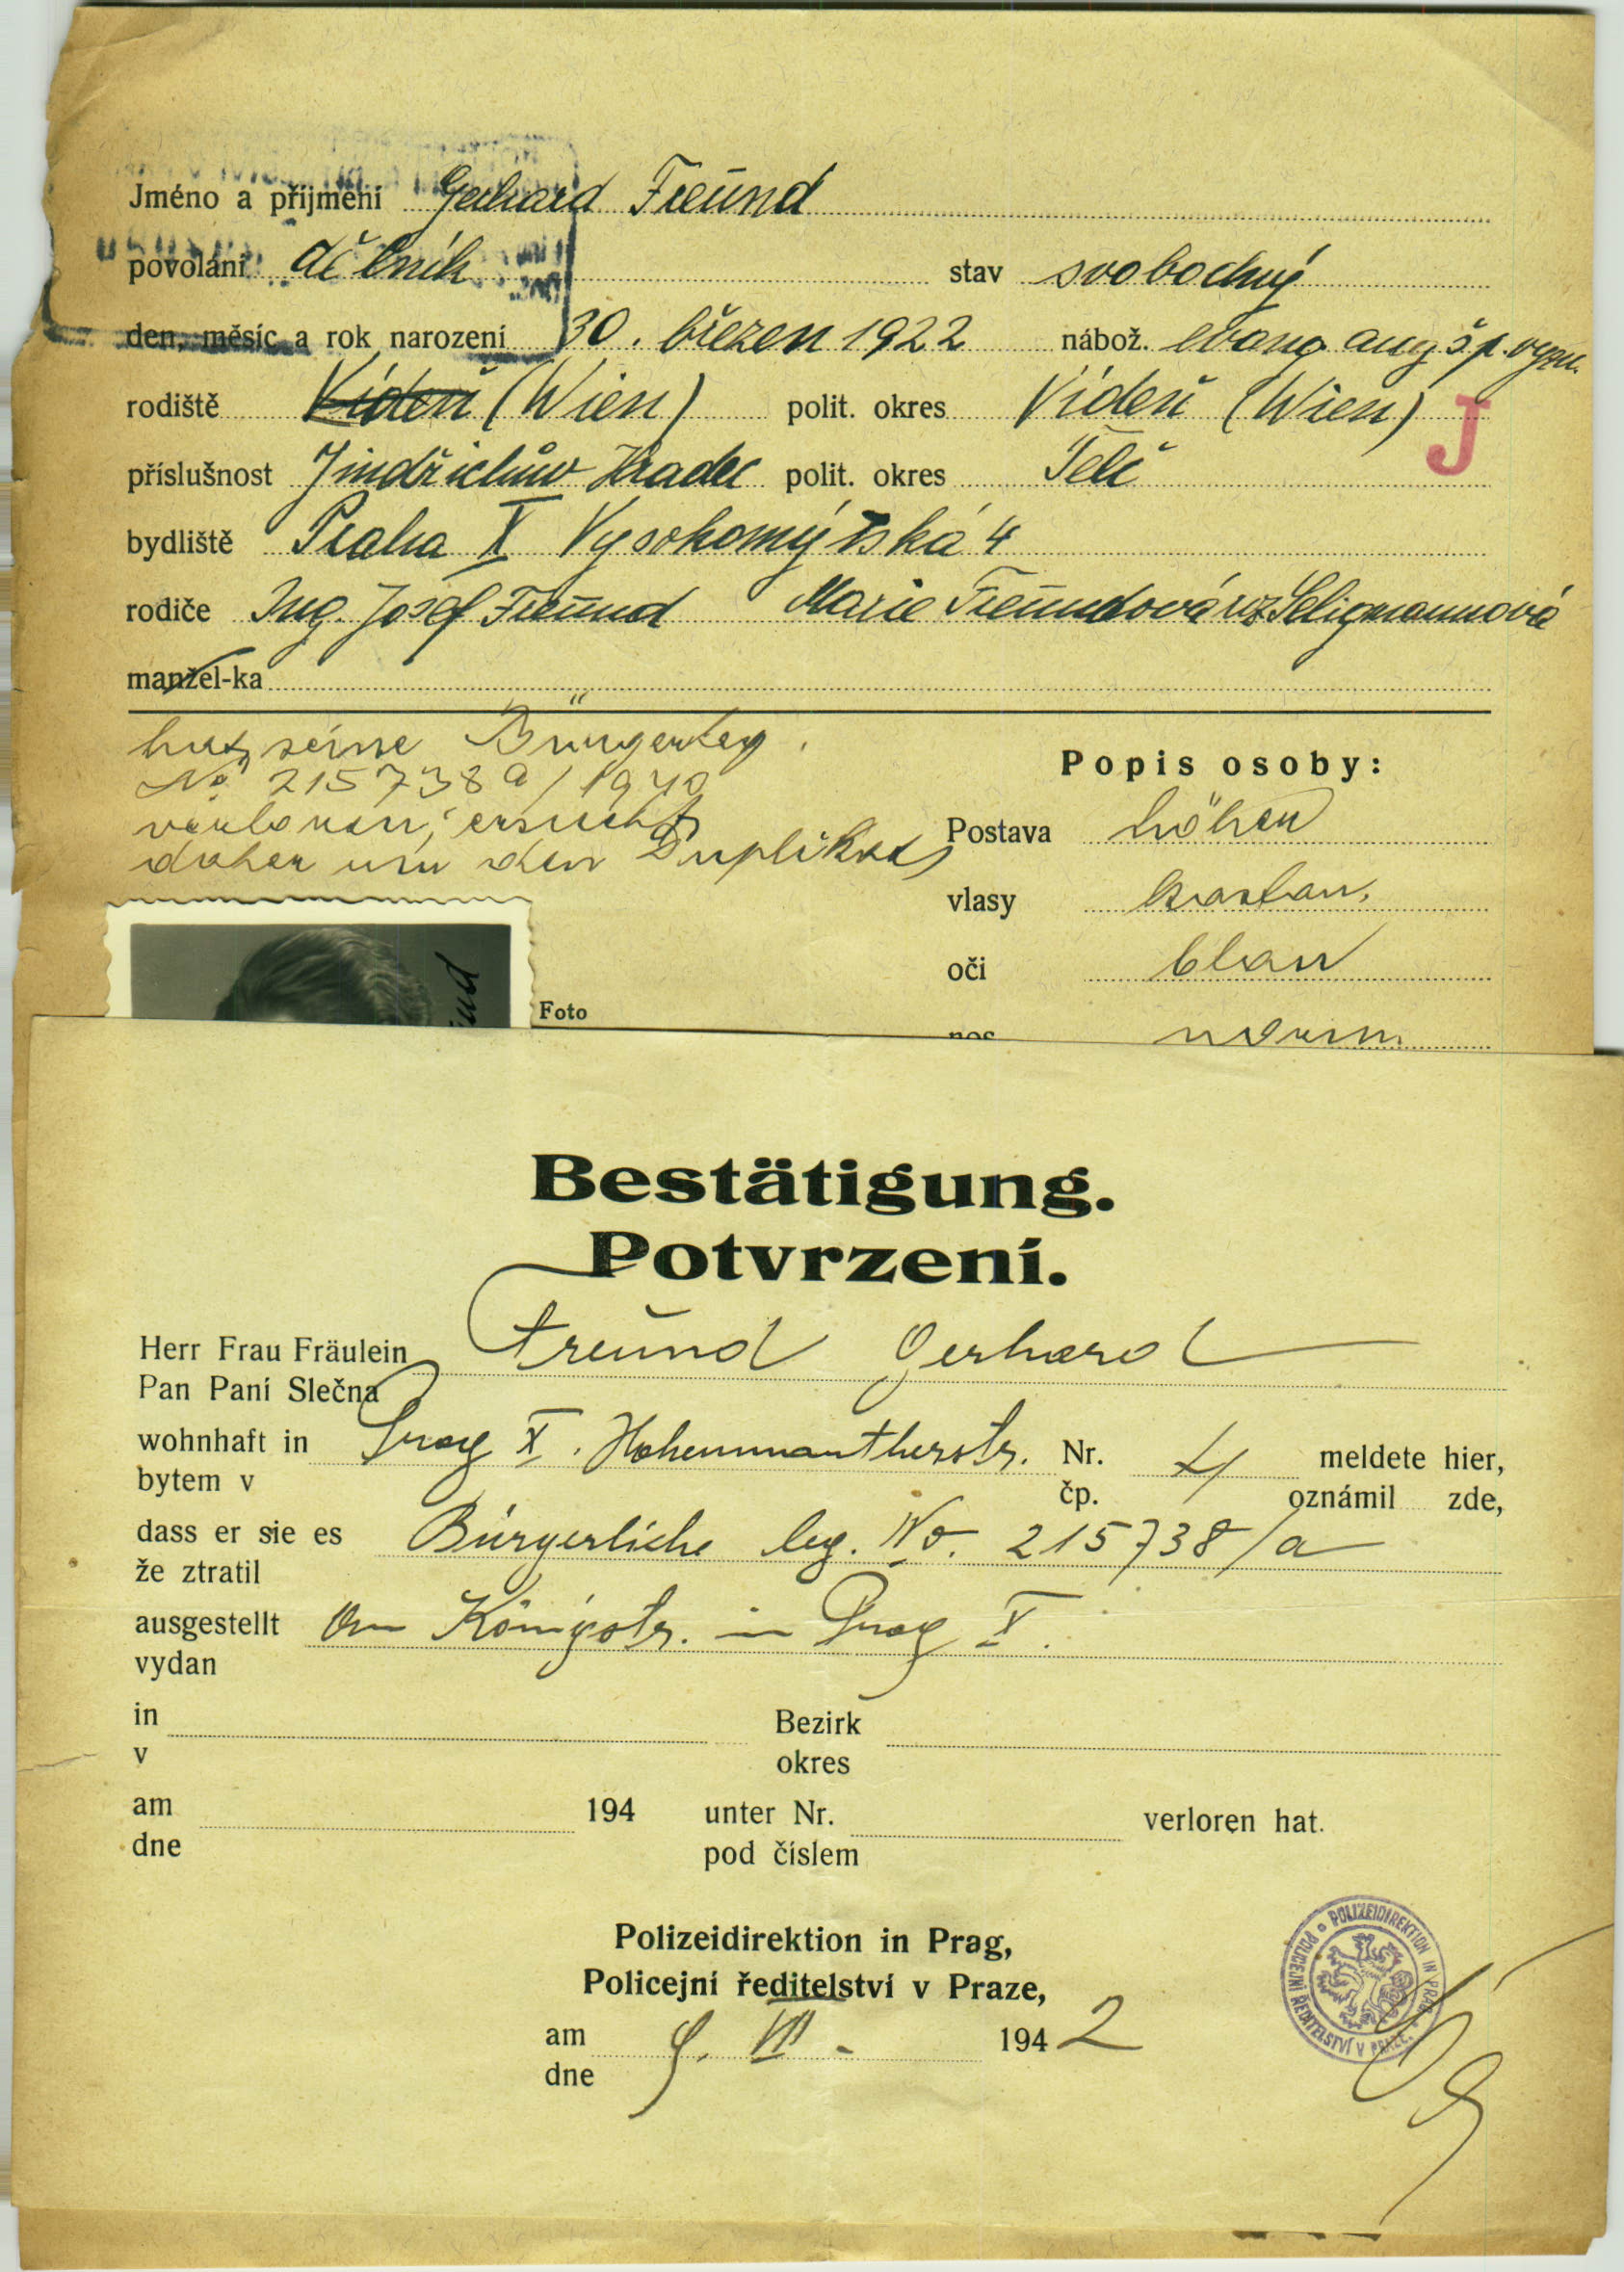 Jméno a přijmení Gerhard Freund
povolání dělník stav svobodný
den, měsíc a rok narození 30. březen 1922 nábož. evang. aug šp. vyzn.
rodiště Vídeň (Wien) polit. okres Vídeň (Wien)
J
příslušnost Jindřichův Hradec polit. okres Telč
bydliště Praha X Vysokomýtská 4
rodiče Ing. Josef Freund Marie Freundová roz Seligmannová
manžel-ka
hat seine Bürgerleg.
No. 215738a/1940
verloren, ersucht
daher um den Duplikat
Popis osoby:
Postava höher
vlasy kastan.
oči blau
Foto
nos norm.
Bestätigung.
Potvrzení.
Herr Frau Fräulein Freund Gerhard
Pan Paní Slečna
wohnhaft in Prag X. Hohenmautherstr. Nr. 4 meldete hier,
bytem v čp. oznámil zde,
dass er sie es Bürgerliche leg. No. 215738/a
že ztratil
ausgestellt Königstr. in Prag X.
vydan
in Bezirk
v okres
am 194 unter Nr. verloren hat.
dne pod číslem
Polizeidirektion in Prag,
Policejní ředitelství v Praze,
am 9. VII. 1942
dne
POLIZEIDIREKTION IN PRAG
POLICEJNÍ ŘEDITELSTVÍ V PRAZE